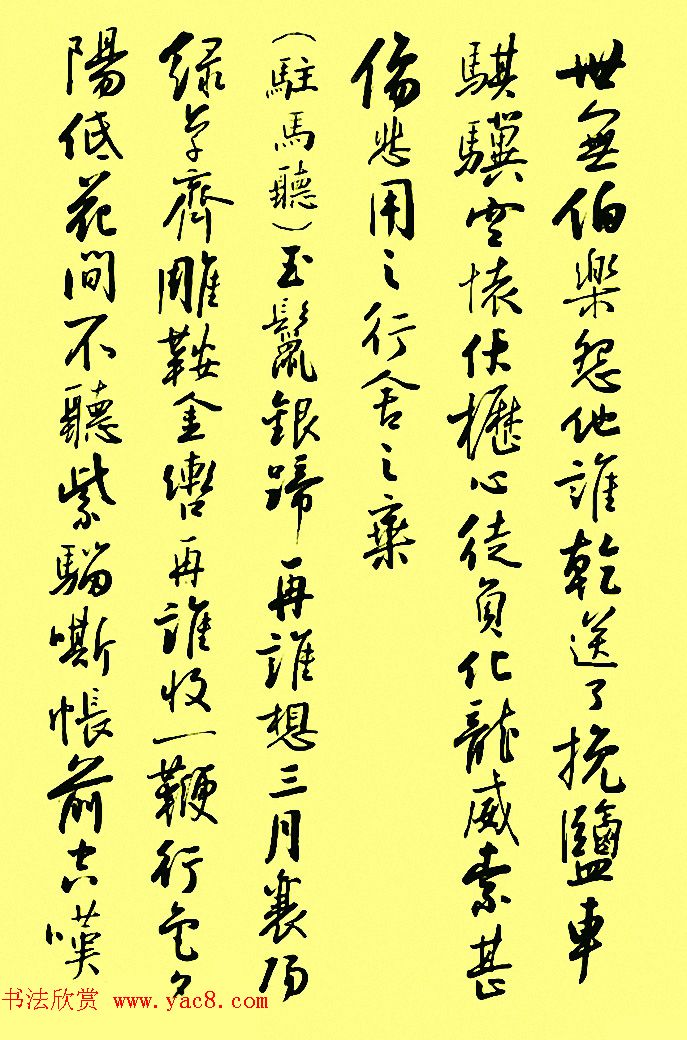 世無伯樂怨他誰乾送了挽鹽車
騏驥空懷伏櫪心徒負化龍威索甚
傷悲用之行舍之棄
(駐馬聽)玉鬣銀蹄再誰想三月襄陽
綠草齊雕鞍金轡再誰收一鞭行色夕
陽低花間不聽紫騮嘶帳前空嘆
书法欣赏 www.yac8.com